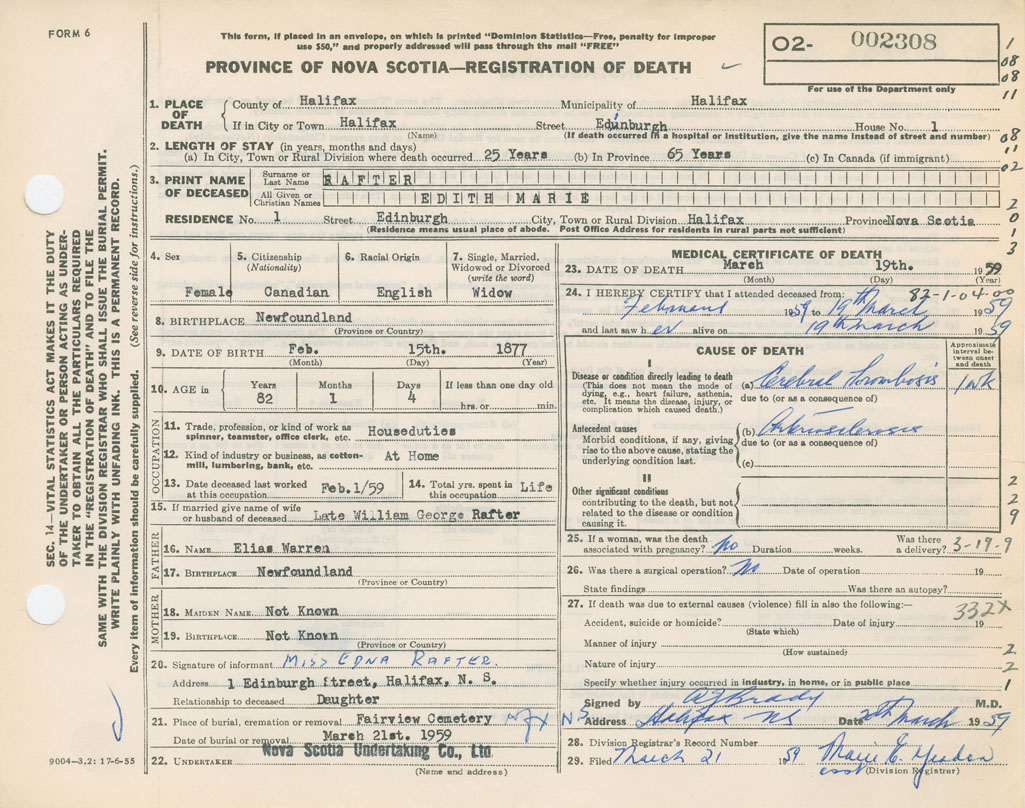 FORM 6
This form, if placed in an envelope, on which is printed "Dominion Statistics—Free, penalty for improper
use $50," and properly addressed will pass through the mail "FREE"
O2- 002308
PROVINCE OF NOVA SCOTIA—REGISTRATION OF DEATH
For use of the Department only
1
08
08
11
08
11
02
2
0
1
3
1. PLACE OF DEATH
County of Halifax Municipality of Halifax
If in City or Town Halifax Street Edinburgh House No. 1
(Name) (If death occurred in a hospital or institution, give the name instead of street and number)
2. LENGTH OF STAY (in years, months and days)
(a) In City, Town or Rural Division where death occurred 25 Years (b) In Province 65 Years (c) In Canada (if immigrant)
3. PRINT NAME OF DECEASED
Surname or Last Name RAFTER
All Given or Christian Names EDITH MARIE
RESIDENCE No. 1 Street Edinburgh City, Town or Rural Division Halifax Province Nova Scotia
(Residence means usual place of abode. Post Office Address for residents in rural parts not sufficient)
SEC. 14—VITAL STATISTICS ACT MAKES IT THE DUTY
OF THE UNDERTAKER OR PERSON ACTING AS UNDER-
TAKER TO OBTAIN ALL THE PARTICULARS REQUIRED
IN THE "REGISTRATION OF DEATH" AND TO FILE THE
SAME WITH THE DIVISION REGISTRAR WHO SHALL ISSUE THE BURIAL PERMIT.
WRITE PLAINLY WITH UNFADING INK. THIS IS A PERMANENT RECORD.
Every item of information should be carefully supplied. (See reverse side for instructions.)
4. Sex
Female
5. Citizenship
(Nationality)
Canadian
6. Racial Origin
English
7. Single, Married,
Widowed or Divorced
(write the word)
Widow
8. BIRTHPLACE Newfoundland
(Province or Country)
9. DATE OF BIRTH Feb. 15th. 1877
(Month) (Day) (Year)
10. AGE in
Years Months Days If less than one day old
82 1 4 hrs. or min.
OCCUPATION
11. Trade, profession, or kind of work as
spinner, teamster, office clerk, etc. Houseduties
12. Kind of industry or business, as cotton-
mill, lumbering, bank, etc. At Home
13. Date deceased last worked
at this occupation Feb.1/59
14. Total yrs. spent in
this occupation Life
15. If married give name of wife
or husband of deceased Late William George Rafter
FATHER
16. NAME Elias Warren
17. BIRTHPLACE Newfoundland
(Province or Country)
MOTHER
18. MAIDEN NAME Not Known
19. BIRTHPLACE Not Known
(Province or Country)
20. Signature of informant MISS EDNA RAFTER.
Address 1 Edinburgh Street, Halifax, N. S.
Relationship to deceased Daughter
21. Place of burial, cremation or removal Fairview Cemetery
Date of burial or removal March 21st. 1959
Nova Scotia Undertaking Co., Ltd.
22. UNDERTAKER
(Name and address)
9004—3.2: 17-6-55
MEDICAL CERTIFICATE OF DEATH
23. DATE OF DEATH March 19th. 1959
(Month) (Day) (Year)
82-1-04-00
24. I HEREBY CERTIFY that I attended deceased from:
February 1959 to 19th March 1959
and last saw her alive on 19th march 1959
CAUSE OF DEATH
Approximate
interval be-
tween onset
and death
I
Disease or condition directly leading to death
(This does not mean the mode of
dying, e.g., heart failure, asthenia,
etc. It means the disease, injury, or
complication which caused death.)
(a) Cerebral Trombosis 1 wk
due to (or as a consequence of)
Antecedent causes
Morbid conditions, if any, giving
rise to the above cause, stating the
underlying condition last.
(b) Arteriosclerosis
due to (or as a consequence of)
(c)
II
Other significant conditions
contributing to the death, but not
related to the disease or condition
causing it.
2
2
9
25. If a woman, was the death
associated with pregnancy? No Duration weeks. Was there
a delivery? 3-19-9
26. Was there a surgical operation? No Date of operation 19
State findings Was there an autopsy?
27. If death was due to external causes (violence) fill in also the following:—
332X
Accident, suicide or homicide? Date of injury 19
(State which)
Manner of injury 2
(How sustained)
Nature of injury 2
Specify whether injury occurred in industry, in home, or in public place 1
Signed by Brady M.D.
NS Address Halifax NS Date 20th March 1959
28. Division Registrar's Record Number
29. Filed March 21 1959
(Division Registrar)